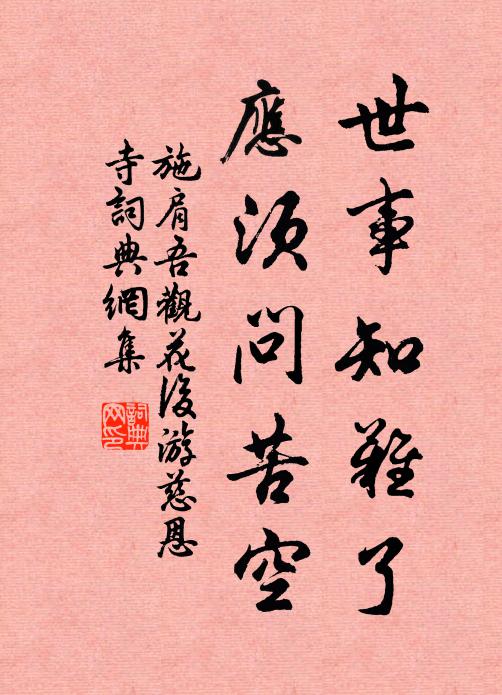 世事知難了
應須問苦空
施肩吾觀花後游慈恩
寺詞典網集
詞典
网印